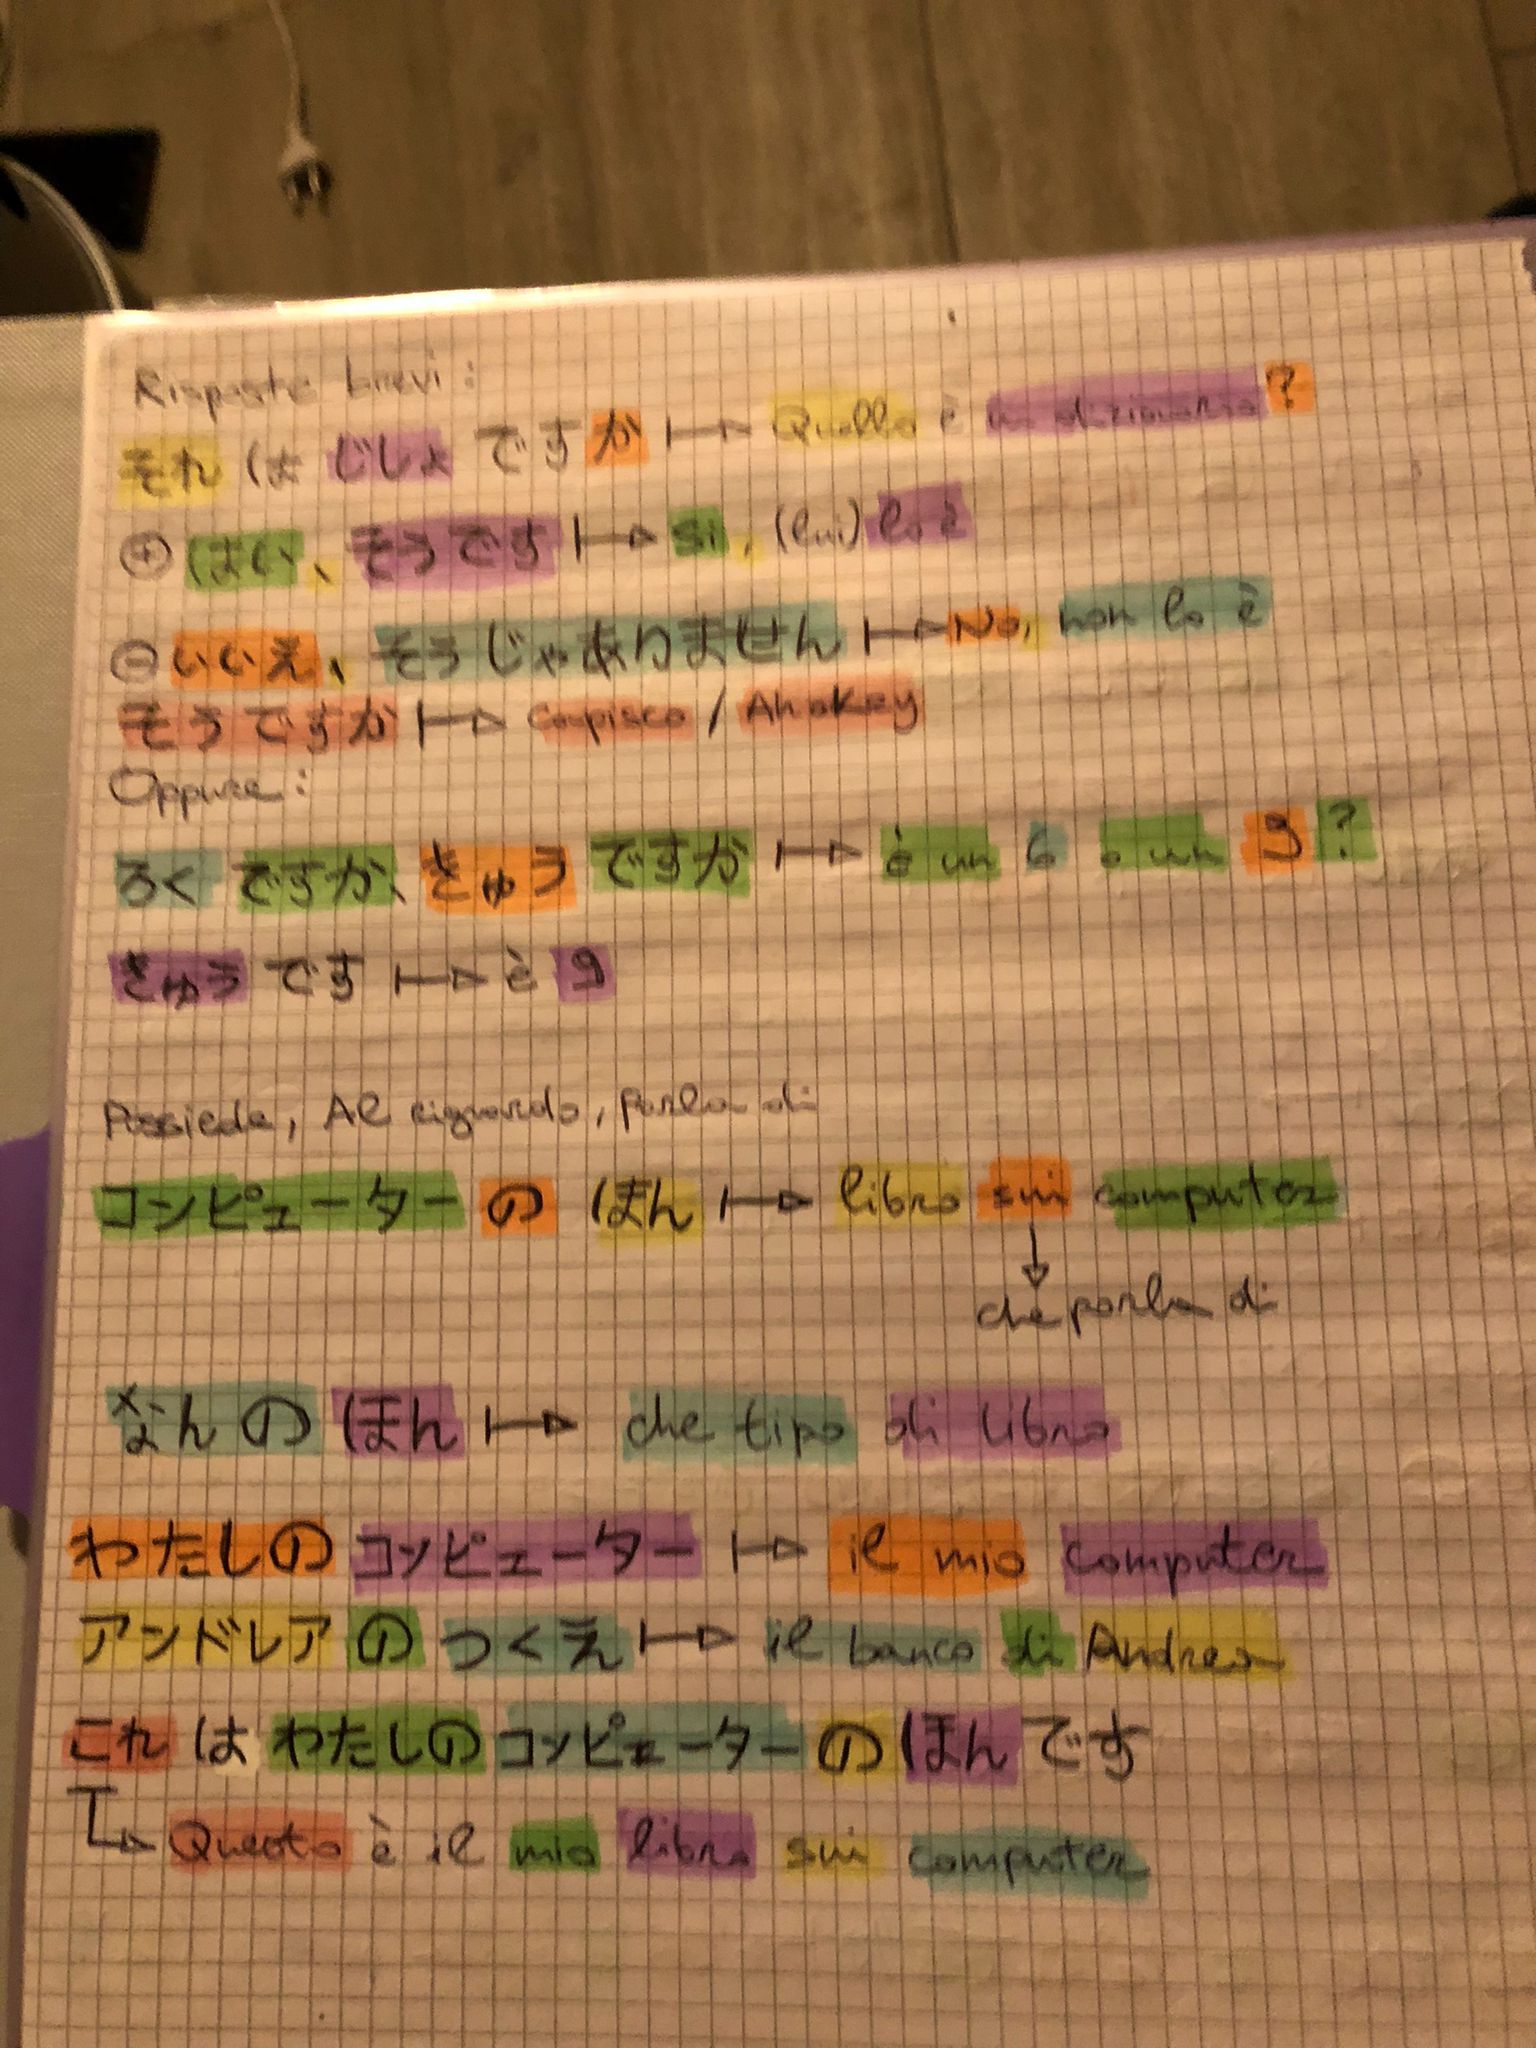 Risposte brevi:
それ は じしょ ですか ↦ Quello è un dizionario?
⊕ はい、そうです ↦ si, (lui) lo è
⊖ いいえ、そうじゃありません ↦ No, non lo è
そうですか ↦ Capisco / Ah okay
Oppure:
ろく ですか、きゅう ですか ↦ è un 6 o un 9?
きゅう です ↦ è 9
Possiede, Al riguardo, parla di
コンピューター の ほん ↦ libro sui computer
che parla di
なん の ほん ↦ che tipo di libro
わたしの コンピューター ↦ il mio computer
アンドレア の つくえ ↦ il banco di Andrea
これ は わたしの コンピューター の ほん です
Questo è il mio libro sui computer